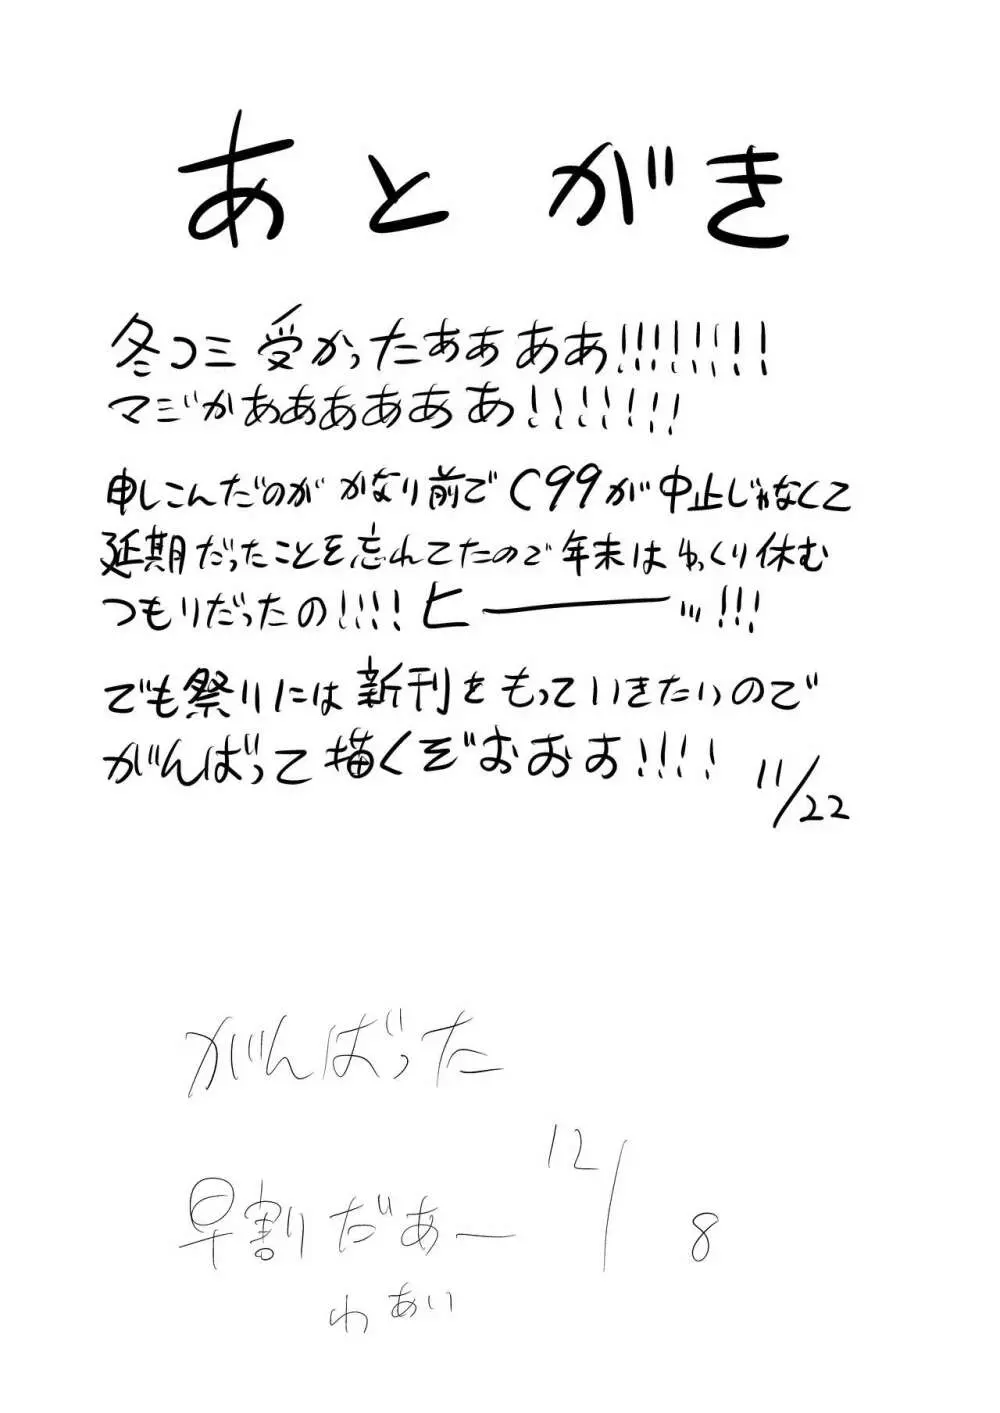 あとがき
冬コミ受かったぁぁああ!!!!!!!!
マジかあああああぁ!!!!!!!
申しこんだのがかなり前でC99が中止じゃなくて
延期だったことを忘れてたので年末はゆっくり休む
つもりだったの!!!!ヒー———ッ!!!
でも祭りには新刊をもっていきたいので
がんばって描くぞおおお!!!!
11/22
がんばった
12/8
早割だあー
わぁい